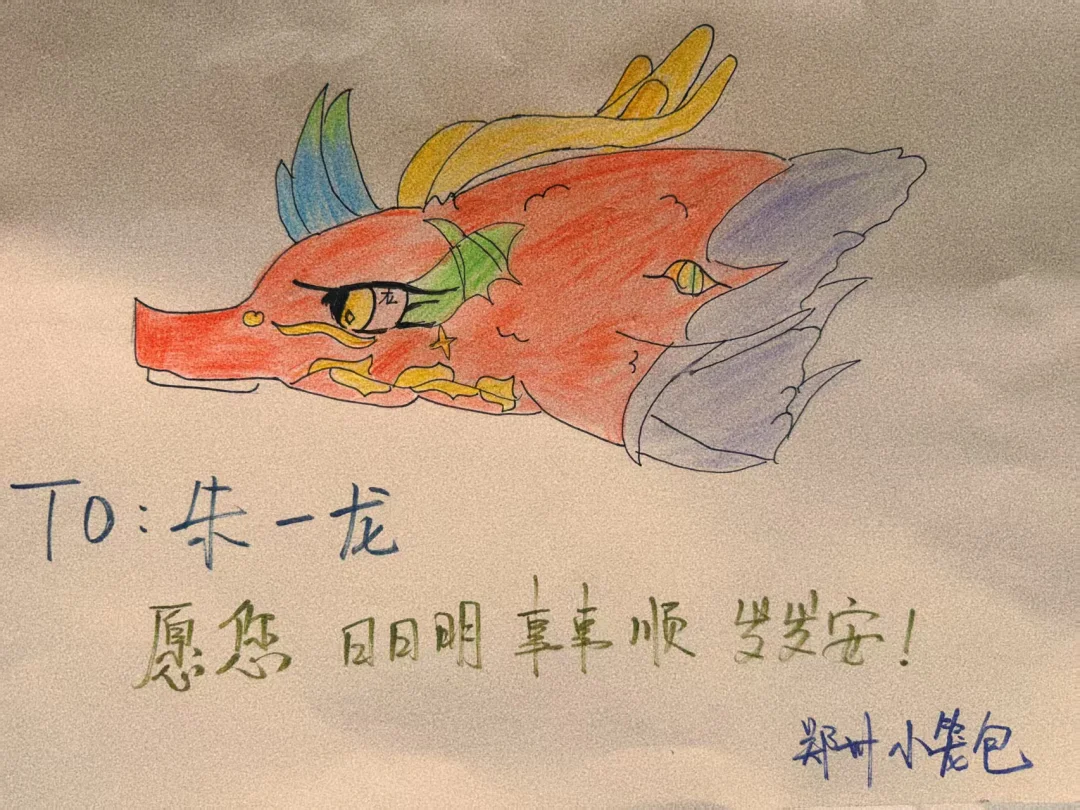 龙
TO:朱一龙
愿您 日日明 事事顺 岁岁安!
郑州小笼包